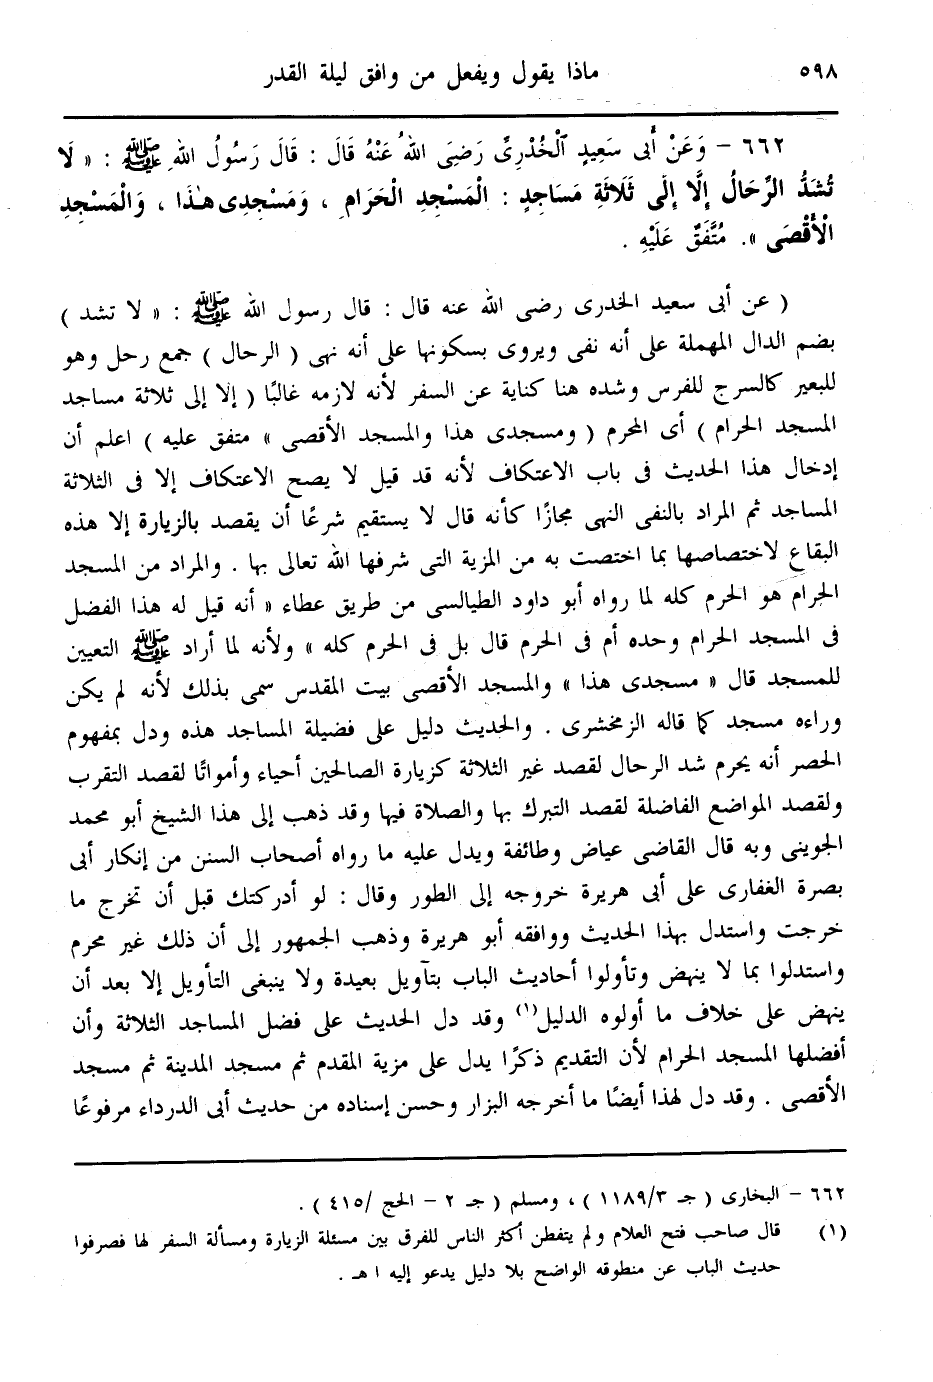 ٥٩٨
ماذا يقول ويفعل من وافق ليلة القدر
٦٦٢ – وَعَنْ أَبى سَعِيدٍ ٱلْخُدْرِىِّ رَضِىَ اللهُ عَنْهُ قَالَ : قَالَ رَسُولُ اللهِ ﷺ : « لَا
تُشَدُّ الرِّحَالُ إِلَّا إِلَى ثَلَاثَةِ مَسَاجِدٍ : الْمَسْجِدِ الْحَرَامِ ، وَمَسْجِدِى هٰذَا ، وَالْمَسْجِدِ
الْأَقْصَى ». مُتَّفَقٌ عَلَيْهِ .
( عن أبى سعيد الخدرى رضى الله عنه قال : قال رسول الله ﷺ : « لا تشد )
بضم الدال المهملة على أنه نفى ويروى بسكونها على أنه نهى ( الرحال ) جمع رحل وهو
للبعير كالسرج للفرس وشده هنا كناية عن السفر لأنه لازمه غالبًا ( إلا إلى ثلاثة مساجد
المسجد الحرام ) أى المحرم ( ومسجدى هذا والمسجد الأقصى » متفق عليه ) اعلم أن
إدخال هذا الحديث فى باب الاعتكاف لأنه قد قيل لا يصح الاعتكاف إلا فى الثلاثة
المساجد ثم المراد بالنفى النهى مجازًا كأنه قال لا يستقيم شرعًا أن يقصد بالزيارة إلا هذه
البقاع لاختصاصها بما اختصت به من المزية التى شرفها الله تعالى بها . والمراد من المسجد
الحرام هو الحرم كله لما رواه أبو داود الطيالسى من طريق عطاء « أنه قيل له هذا الفضل
فى المسجد الحرام وحده أم فى الحرم قال بل فى الحرم كله » ولأنه لما أراد ﷺ التعيين
للمسجد قال « مسجدى هذا » والمسجد الأقصى بيت المقدس سمى بذلك لأنه لم يكن
وراءه مسجد كما قاله الزمخشرى . والحديث دليل على فضيلة المساجد هذه ودل بمفهوم
الحصر أنه يحرم شد الرحال لقصد غير الثلاثة كزيارة الصالحين أحياء وأمواتًا لقصد التقرب
ولقصد المواضع الفاضلة لقصد التبرك بها والصلاة فيها وقد ذهب إلى هذا الشيخ أبو محمد
الجوينى وبه قال القاضى عياض وطائفة ويدل عليه ما رواه أصحاب السنن من إنكار أبى
بصرة الغفارى على أبى هريرة خروجه إلى الطور وقال : لو أدركتك قبل أن تخرج ما
خرجت واستدل بهذا الحديث ووافقه أبو هريرة وذهب الجمهور إلى أن ذلك غير محرم
واستدلوا بما لا ينهض وتأولوا أحاديث الباب بتآويل بعيدة ولا ينبغى التأويل إلا بعد أن
ينهض على خلاف ما أولوه الدليل(١) وقد دل الحديث على فضل المساجد الثلاثة وأن
أفضلها المسجد الحرام لأن التقديم ذكرًا يدل على مزية المقدم ثم مسجد المدينة ثم مسجد
الأقصى . وقد دل لهذا أيضًا ما أخرجه البزار وحسن إسناده من حديث أبى الدرداء مرفوعًا
٦٦٢ – البخارى ( جـ ٣/١١٨٩ ) ، ومسلم ( جـ ٢ – الحج /٤١٥ ) .
(١) قال صاحب فتح العلام ولم يتفطن أكثر الناس للفرق بين مسئلة الزيارة ومسألة السفر لها فصرفوا
حديث الباب عن منطوقه الواضح بلا دليل يدعو إليه ا هـ .